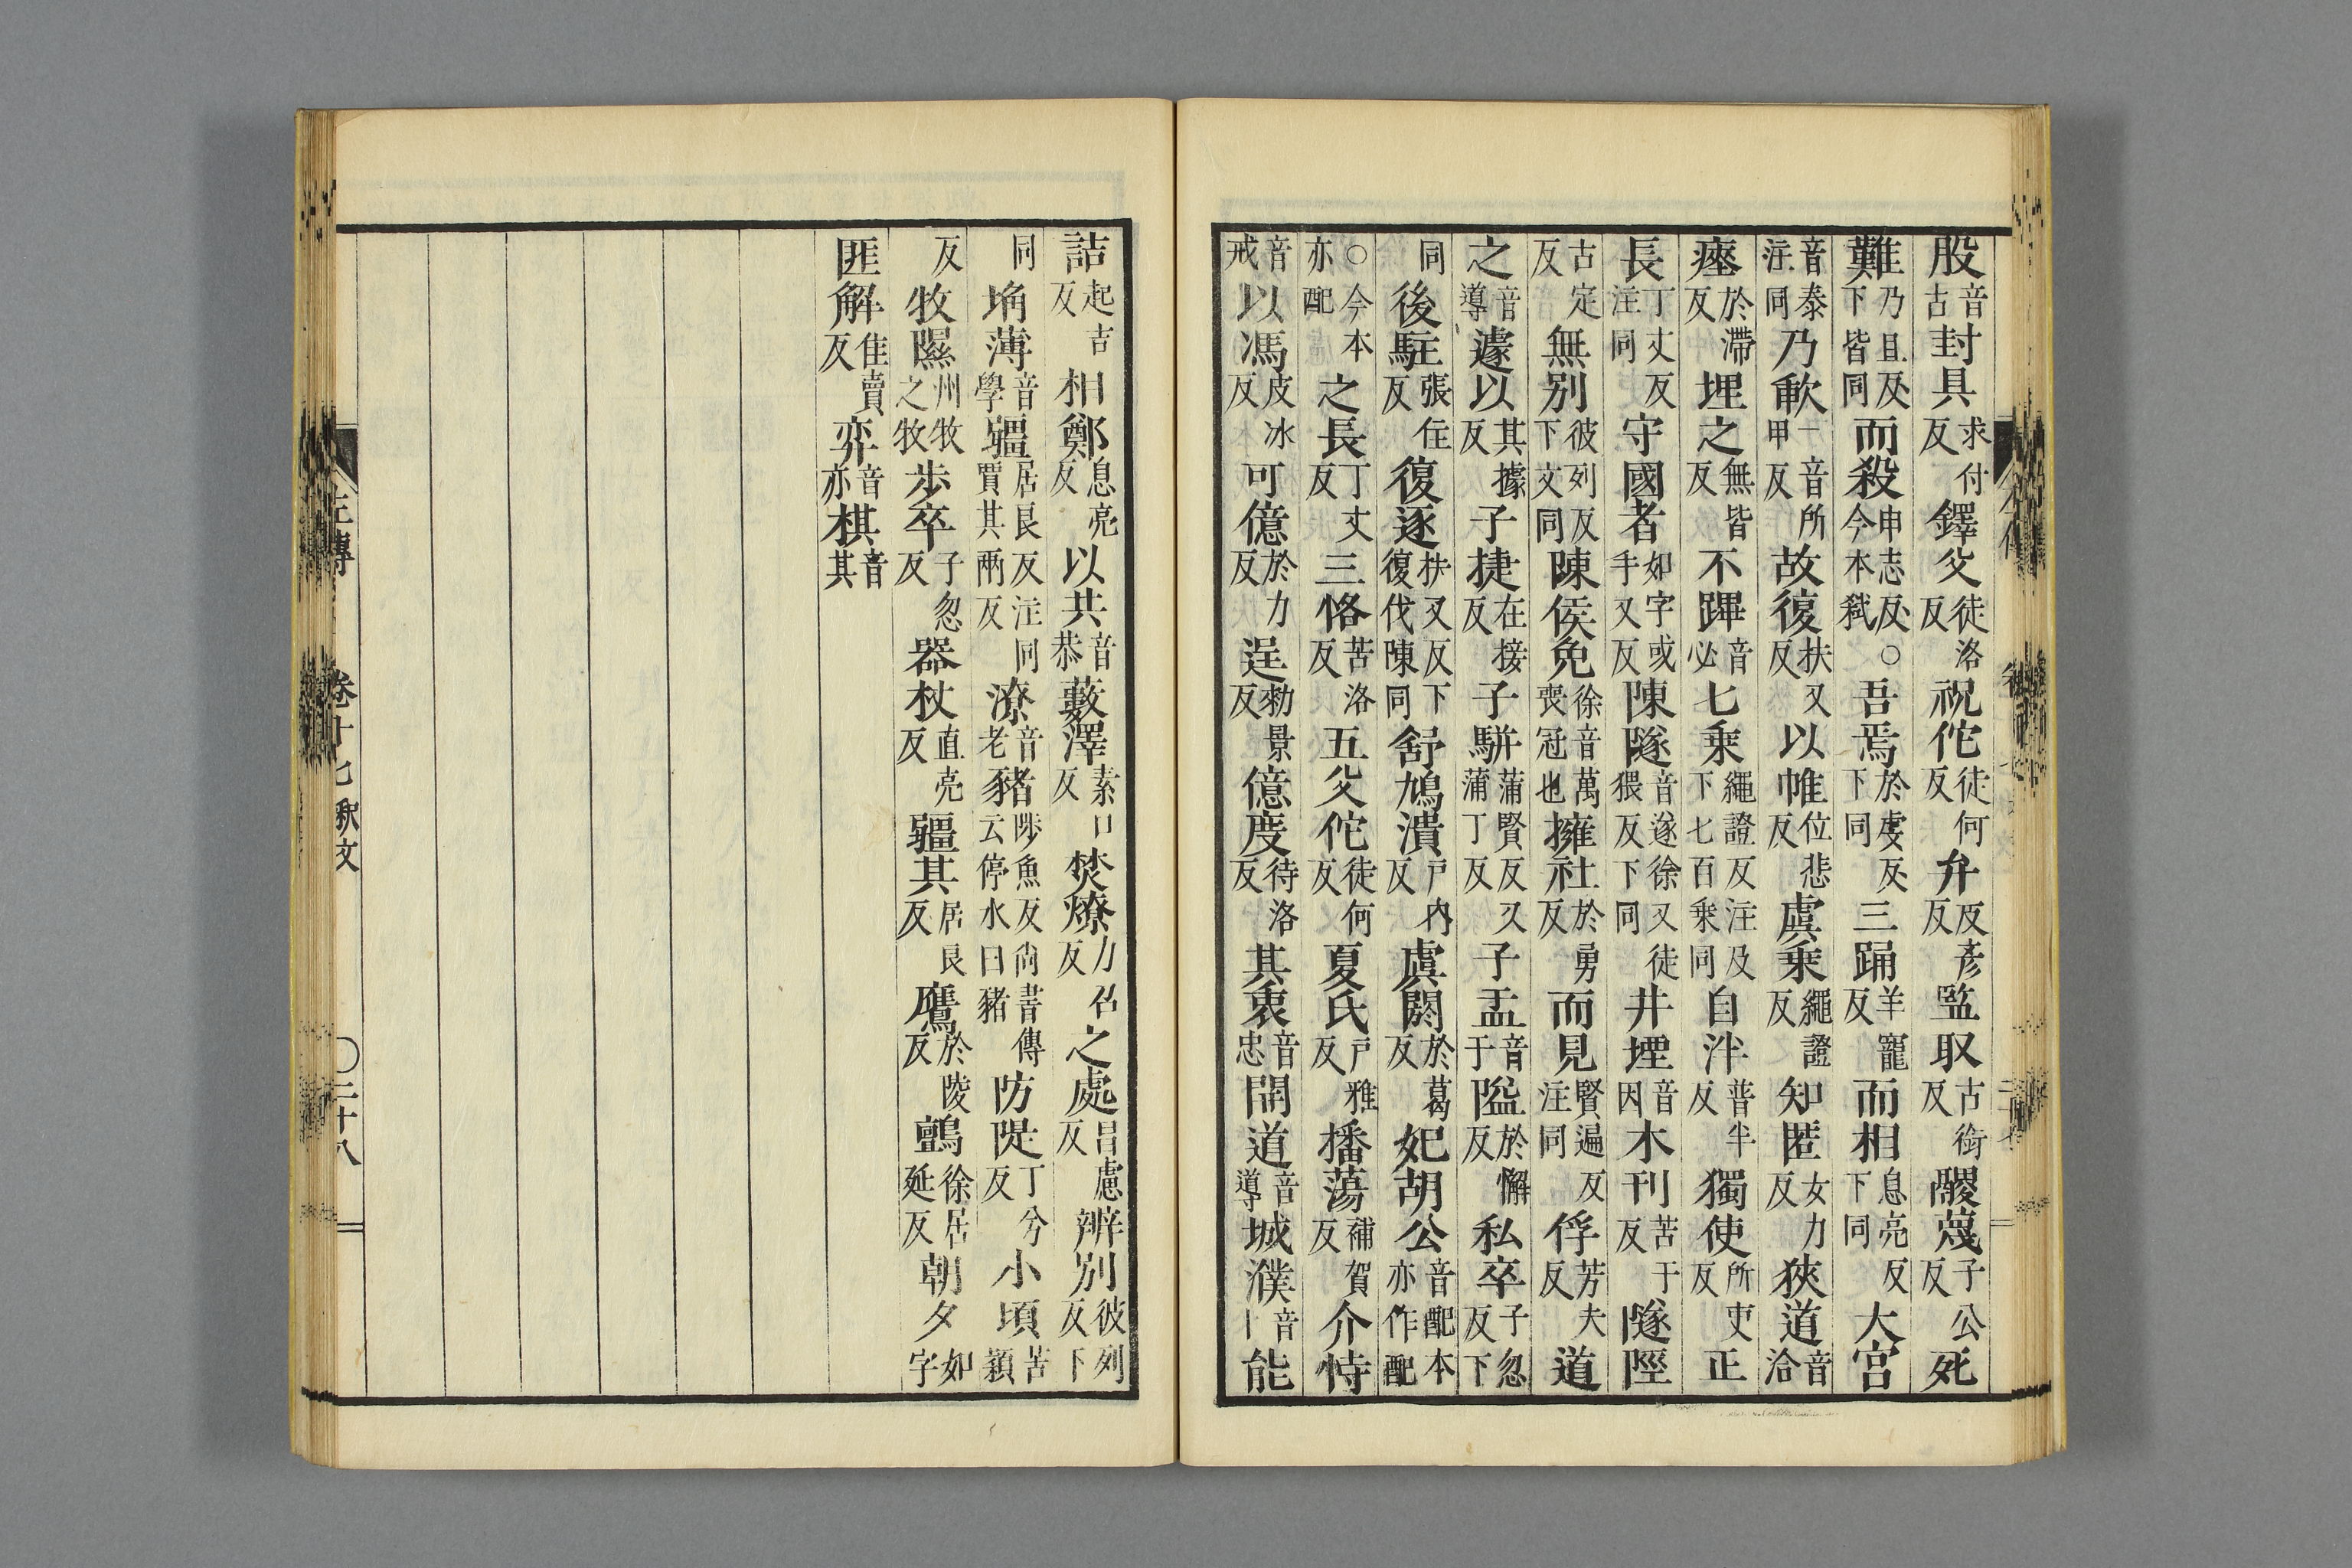 股音古封具求付反鐸父徒洛反祝佗徒何反弁皮彥反監取古銜反鬷蔑子公反死
難乃且反下皆同而殺申志反今本弒○吾焉於虔反下同三踊羊寵反而相息亮反下同大宮
音泰注同乃歃一音所甲反故復扶又反以帷位悲反虞乘繩證反知匿女力反狹道音洽
瘞於滯反埋之無皆反不蹕音必七乘繩證反注及下七百乘同自泮普半反獨使所吏反正
長丁丈反注同守國者如字或手又反陳隧音遂徐又徒猥反下同井堙音因木刊苦于反隧陘
古定反無別彼列反下文同陳侯免徐音萬喪冠也擁社於勇反而見賢遍反注同俘芳夫反道
之音導遽以其據反子捷在接反子駢蒲賢反又蒲丁反子盂音于隘於懈反私卒子忽反下
同後駐張住反復逐扶又反下復伐陳同舒鳩潰戶內反虞閼於葛反妃胡公音配本亦作配
○今本亦配之長丁丈反三恪苦洛反五父佗徒何反夏氏戶雅反播蕩補賀反介恃
音戒以馮皮冰反可億於力反逞勑景反億度待洛反其衷音忠開道音導城濮音卜能
詰起吉反相鄭息亮反以共音恭藪澤素口反焚燎力召反之處昌慮反辨別彼列反下
同埆薄音學疆居良反注同賈其兩反潦音老豬陟魚反尚書傳云停水曰豬防隄丁兮反小頃苦穎
反牧隰州牧之牧步卒子忽反器杖直亮反疆其居良反鷹於陵反鸇徐居延反朝夕如字
匪解佳賣反弈音亦棋音其
左傳 卷十七釈文 ○二十八